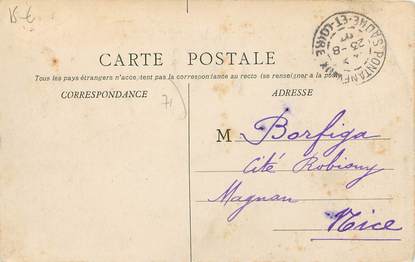 15 €
CARTE POSTALE
Tous les pays étrangers n'acceptent pas la correspondance au recto (se renseigner à la poste)
CORRESPONDANCE
ADRESSE
71
M Borfiga
Cité Robiony
Magnan
Nice
SAÔNE-ET-LOIRE
23 -8